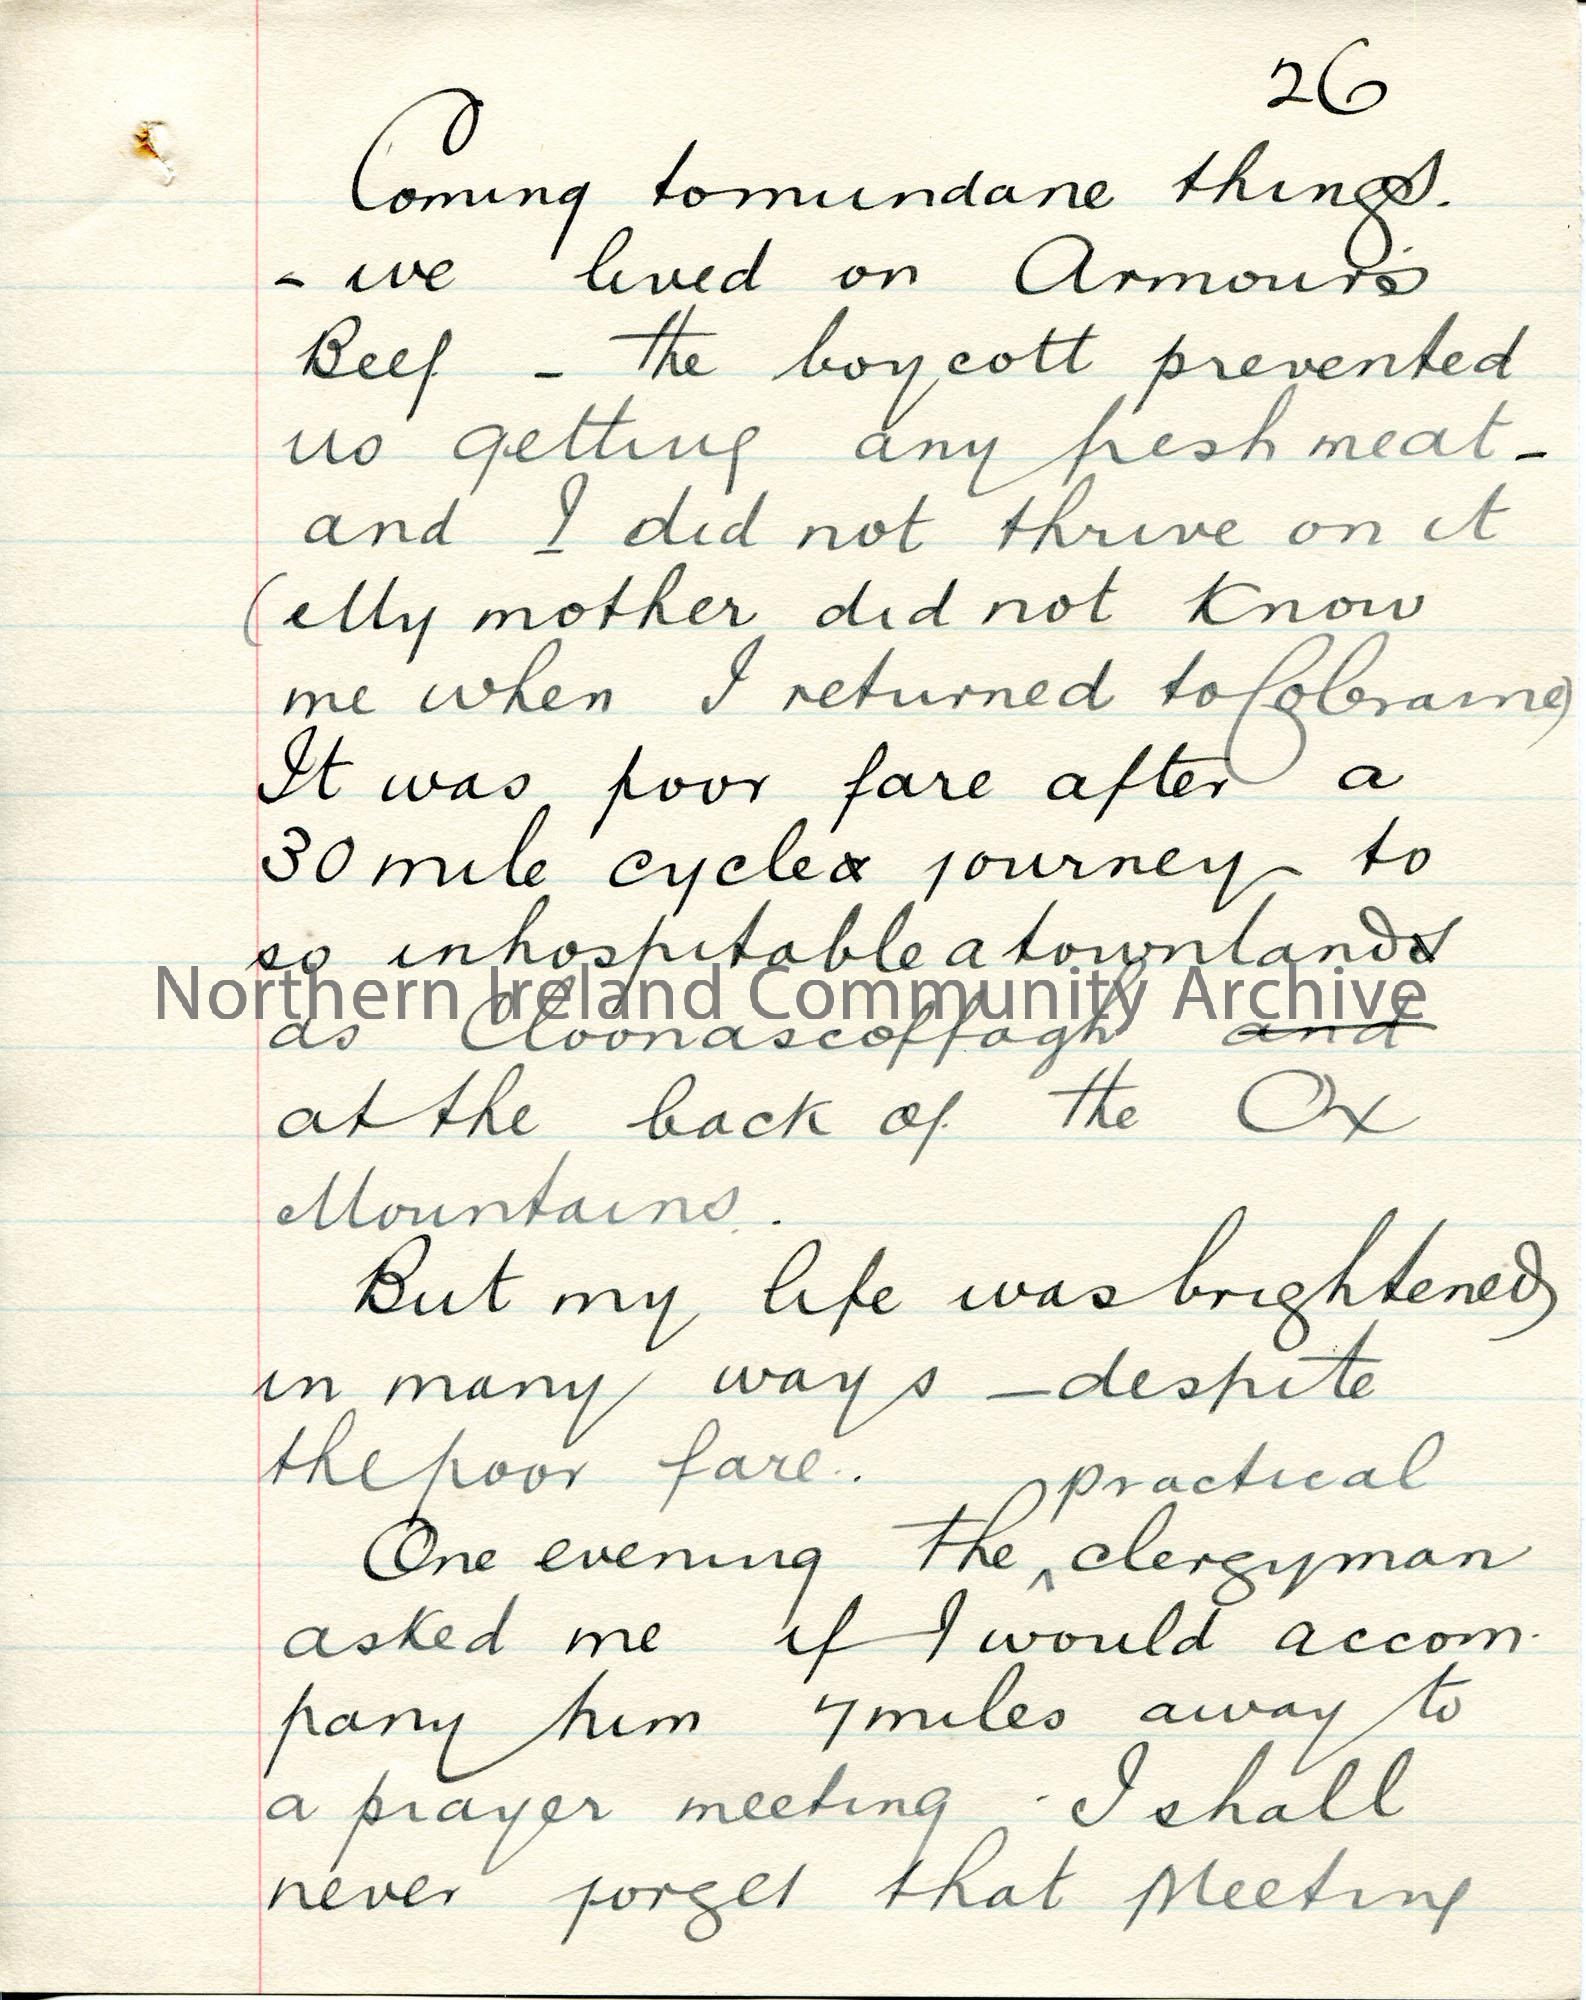 26
Coming to mundane things.
- we lived on Armour's
Beef - the boycott prevented
us getting any fresh meat -
and I did not thrive on it
(My mother did not know
me when I returned to Coleraine)
It was poor fare after a
30 mile cycle journey to
so inhospitable a townland
Northern Ireland Community Archive
as Cloonascoffagh and
at the back of the Ox
Mountains.
But my life was brightened
in many ways - despite
the poor fare.
practical
One evening the ^ clergyman
asked me if I would accom-
pany him 7 miles away to
a prayer meeting. I shall
never forget that Meeting